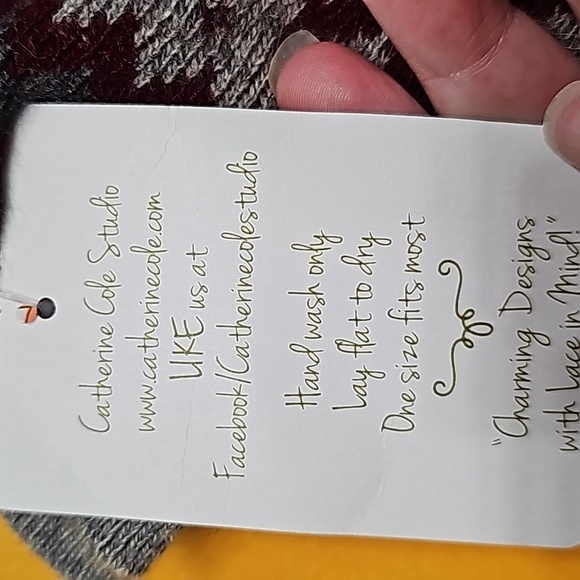 Catherine Cole Studio
www.catherinecole.com
LIKE us at
Facebook/Catherinecolestudio
Hand wash only
Lay flat to dry
One size fits most
"Charming Designs
with Lace in Mind!"